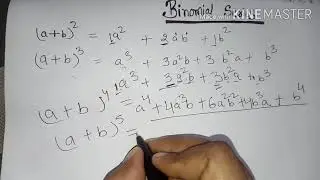 Binomial
Made With
KINEMASTER
(a+b)² = 1a² + 2ab + 1b²
(a+b)³ = a³ + 3a²b + 3b²a + b³
1a³ + 3a²b + 3b²a + b³
(a+b)⁴ = a⁴ + 4a³b + 6a²b² + 4b³a + b⁴
(a+b)⁵ =